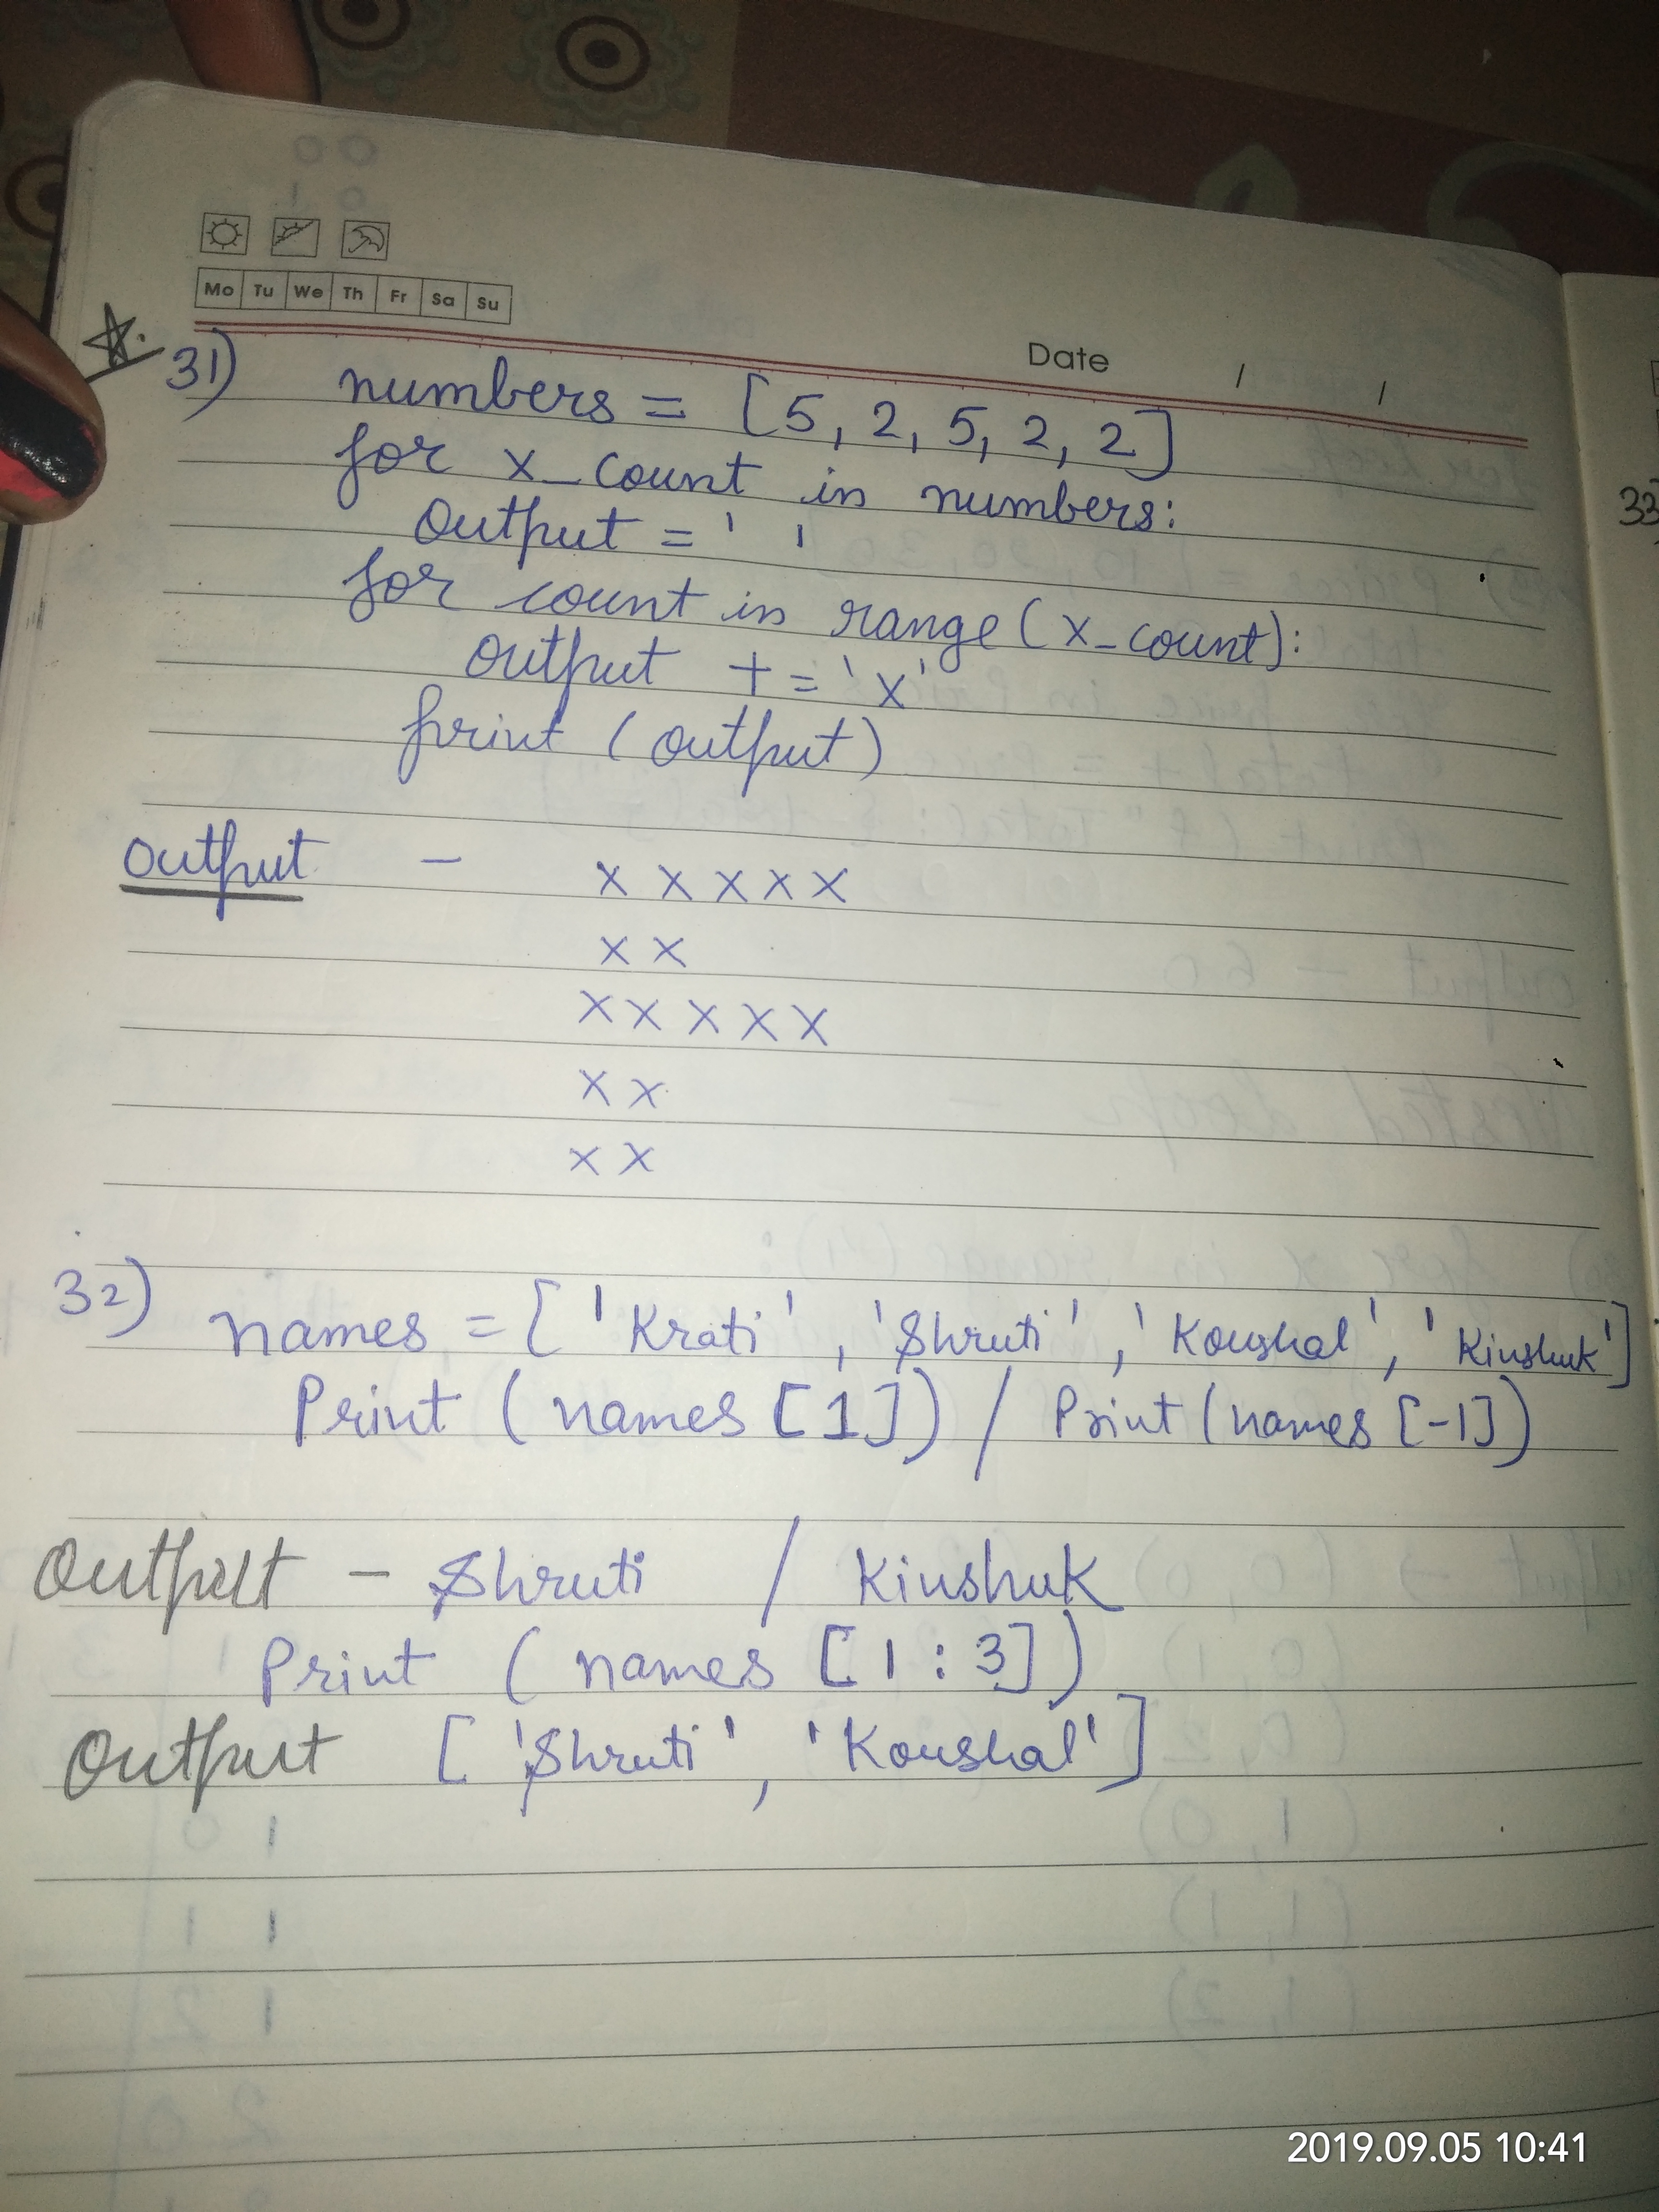 Mo Tu We Th Fr Sa Su
Date / /
31) numbers = [5, 2, 5, 2, 2]
for x_count in numbers:
Output = ' '
for count in range (x_count):
output += 'x'
print (output)
Output - x x x x x
x x
x x x x x
x x
x x
32) names = ['Krati', 'Shruti', 'Koushal', 'Kinshuk']
Print (names [1]) / Print (names [-1])
Output - Shruti / Kinshuk
Print (names [1 : 3])
Output ['Shruti', 'Koushal']
33
2019.09.05 10:41